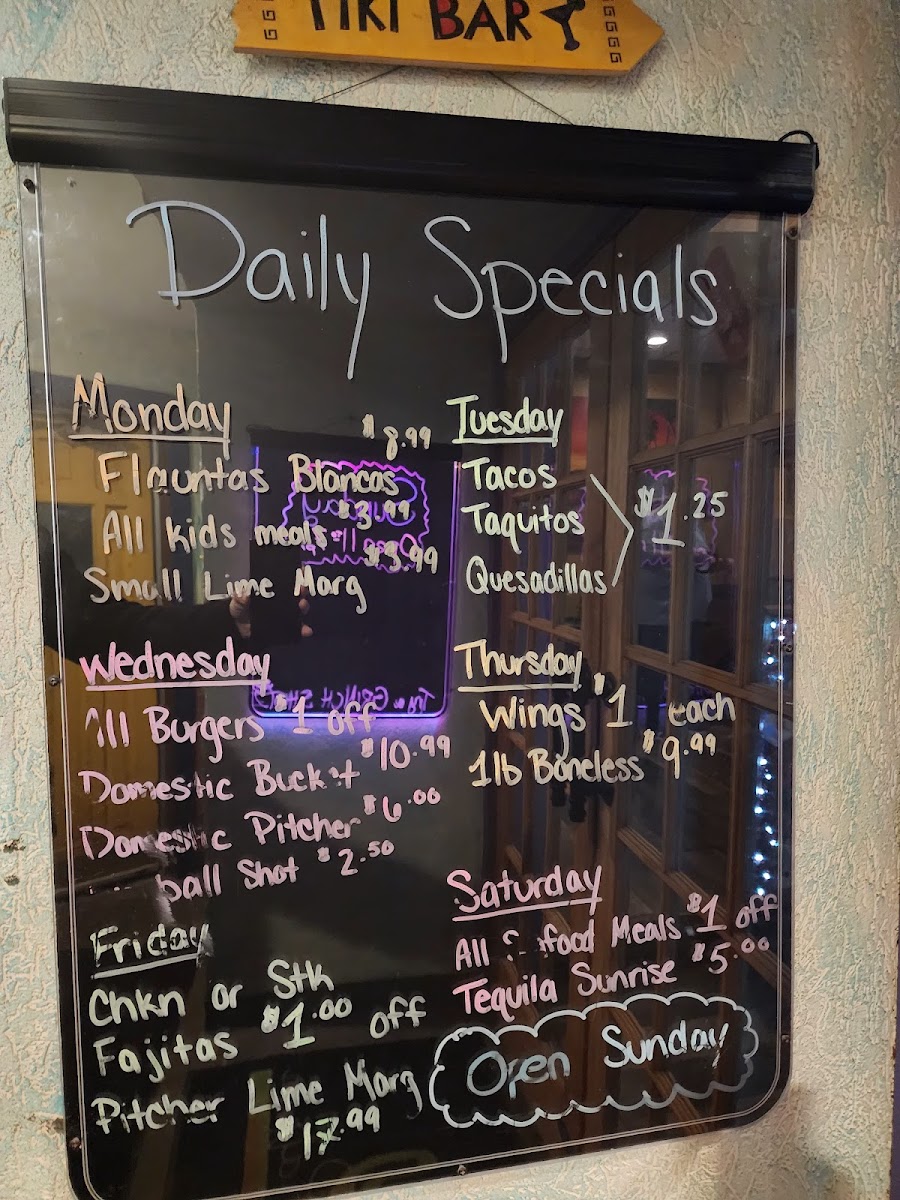 TIKI BAR
Daily Specials
Monday
$8.99
Flauntas Blancas
$3.99
All kids meals
$3.99
Small Lime Marg
Tuesday
Tacos
Taquitos
Quesadillas
$1.25
Wednesday
All Burgers $1 off
Domestic Buckt $10.99
Domestic Pitcher $6.00
ball Shot $2.50
Thursday
Wings $1 each
1lb Boneless $9.99
Friday
Chkn or Stk
Fajitas $1.00 off
Pitcher Lime Marg
$17.99
Saturday
All S food Meals $1 off
Tequila Sunrise $5.00
Open Sunday